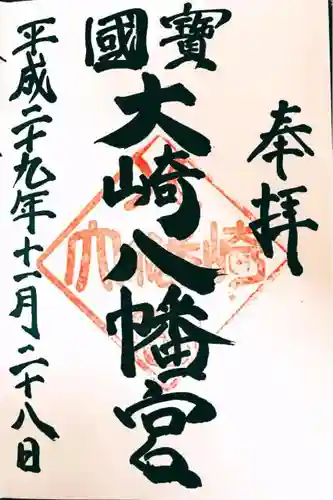 奉拝
寳國
大崎八幡宮
大崎八幡
平成二十九年十一月二十八日